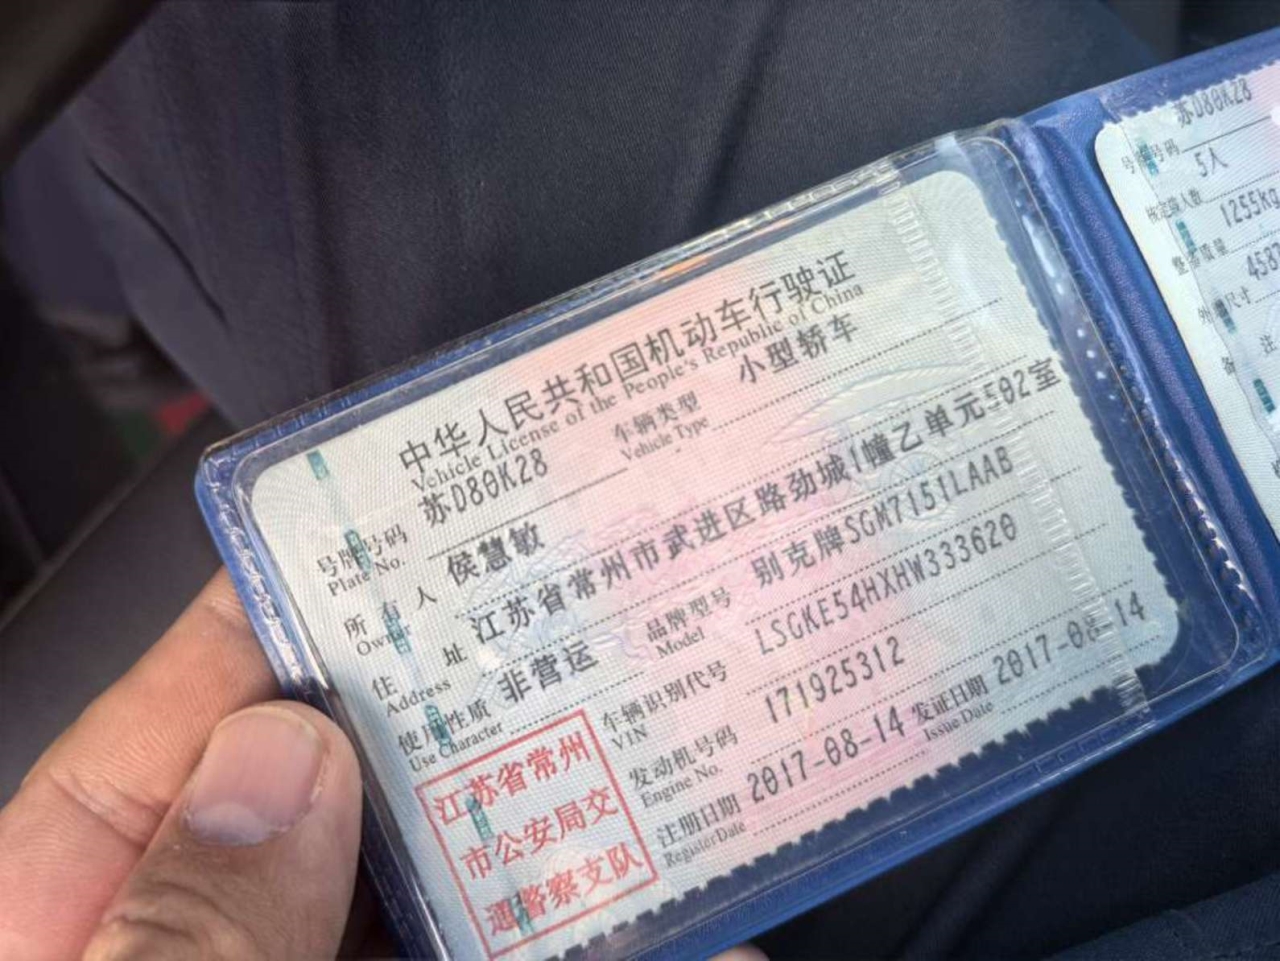 中华人民共和国机动车行驶证
Vehicle License of the People's Republic of China
号牌号码 苏D80K28 车辆类型 小型轿车
Plate No. Vehicle Type
所有人 侯慧敏
Owner
住址 江苏省常州市武进区路劲城1幢乙单元502室
Address
使用性质 非营运 品牌型号 别克牌SGM7151LAAB
Use Character Model
车辆识别代号 LSGKE54HXHW333620
VIN
发动机号码 171925312
Engine No.
注册日期 2017-08-14 发证日期 2017-08-14
Register Date Issue Date
江苏省常州
市公安局交
通警察支队
号牌号码 苏D80K28
核定载人数 5人
整备质量 1255kg
外廓尺寸 458
备注